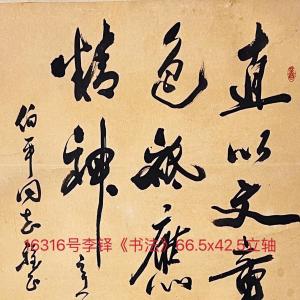 直以文章
色終應
精神
伯平同志雅正
16316号李铎《书法》66.5x42.5立轴